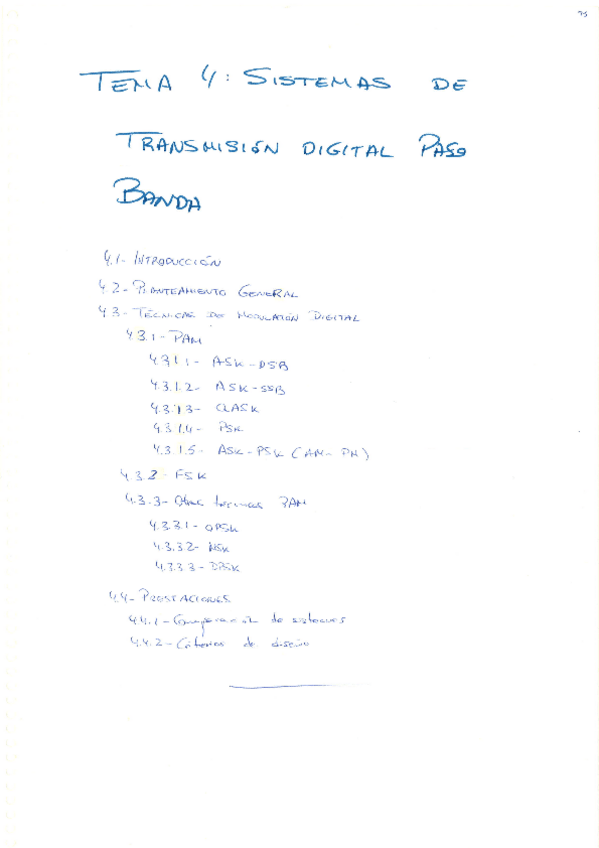 75
TEMA 4: SISTEMAS DE
TRANSMISIÓN DIGITAL PASO
BANDA
4.1- INTRODUCCIÓN
4.2- PLANTEAMIENTO GENERAL
4.3- TÉCNICAS DE MODULACIÓN DIGITAL
4.3.1- PAM
4.3.1.1- ASK-DSB
4.3.1.2- ASK-SSB
4.3.1.3- QASK
4.3.1.4- PSK
4.3.1.5- ASK-PSK (AM-PM)
4.3.2- FSK
4.3.3- Otras técnicas PAM
4.3.3.1- OPSK
4.3.3.2- MSK
4.3.3.3- DPSK
4.4- PRESTACIONES
4.4.1- Comparación de sistemas
4.4.2- Criterios de diseño